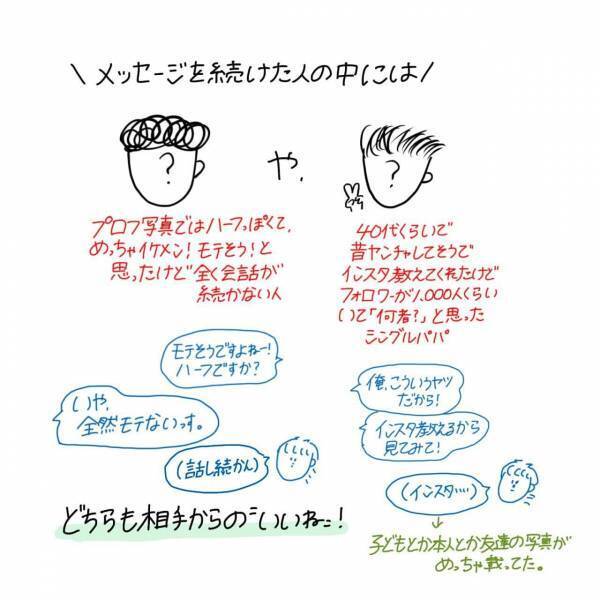 \メッセージを続けた人の中には/
?
や、
?
プロフ写真ではハーフっぽくて、
めっちゃイケメン！モテそう！と
思ったけど全く会話が
続かない人
40代くらいで
昔ヤンチャしてそうで
インスタ教えてくれたけど
フォロワーが1,000人くらい
いて「何者？」と思った
シングルパパ
モテそうですよねー！
ハーフですか？
いや、
全然モテないっす。
(話し続かん)
俺、こういうヤツ
だから！
インスタ教えるから
見てみて！
(インスタ…)
どちらも相手からの"いいね"！
子どもとか本人とか友達の写真が
めっちゃ載ってた。